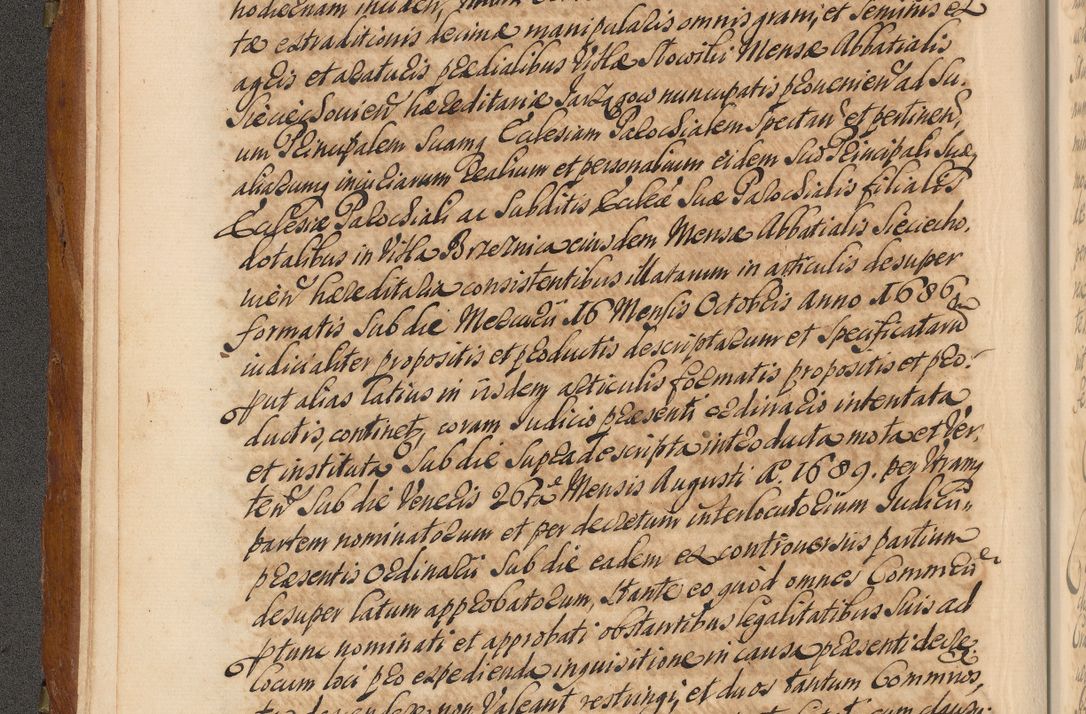 tæ extraditionis decimæ manipularis omnis grani, et seminis ex
agris et araturis prædialibus Villæ Mensæ Abbatialis
Sieciechovien hæreditariæ nuncupatis provenien ad Su,
um Principalem Suamq Ecclesiam Parochialem Spectan et pertinen,
aliarumq iniuriarum Realium et personalium eidem Suæ Principali Suæq
Ecclesiæ Parochiali ac Subditis Ecclæ Suæ Parochialis filialis
dotalibus in Villa Brzeznica eiusdem Mensæ Abbatialis Sieciecho,
vien hæreditaria consistentibus illatarum in articulis desuper
formatis Sub die Mercurii 16 Mensis Octobris Anno 1686
iudicialiter propositis et productis descriptarum et Specificatarum
put alias latius in iisdem articulis formatis propositis et pro-
ductis, continetr, coram Judicio præsenti ordinario intentata
et instituta Sub die Supradescripta introducta mota et Ver,
ten Sub die Veneris 26 Mensis Augusti Ao. 1689. per Utramq
partem nominatorum et per decretum interlocutorium Judicii
præsentis Ordinarii Sub die eadem ex controversiis partium
desuper latum approbatorum, Stante eo quòd omnes Commrii
ptunc nominati et approbati obstantibus legalitatibus Suis ad
locum loci pro expedienda inquisitione in causa præsenti decre,
non Valeant restringi, et duos tantum Commrios,